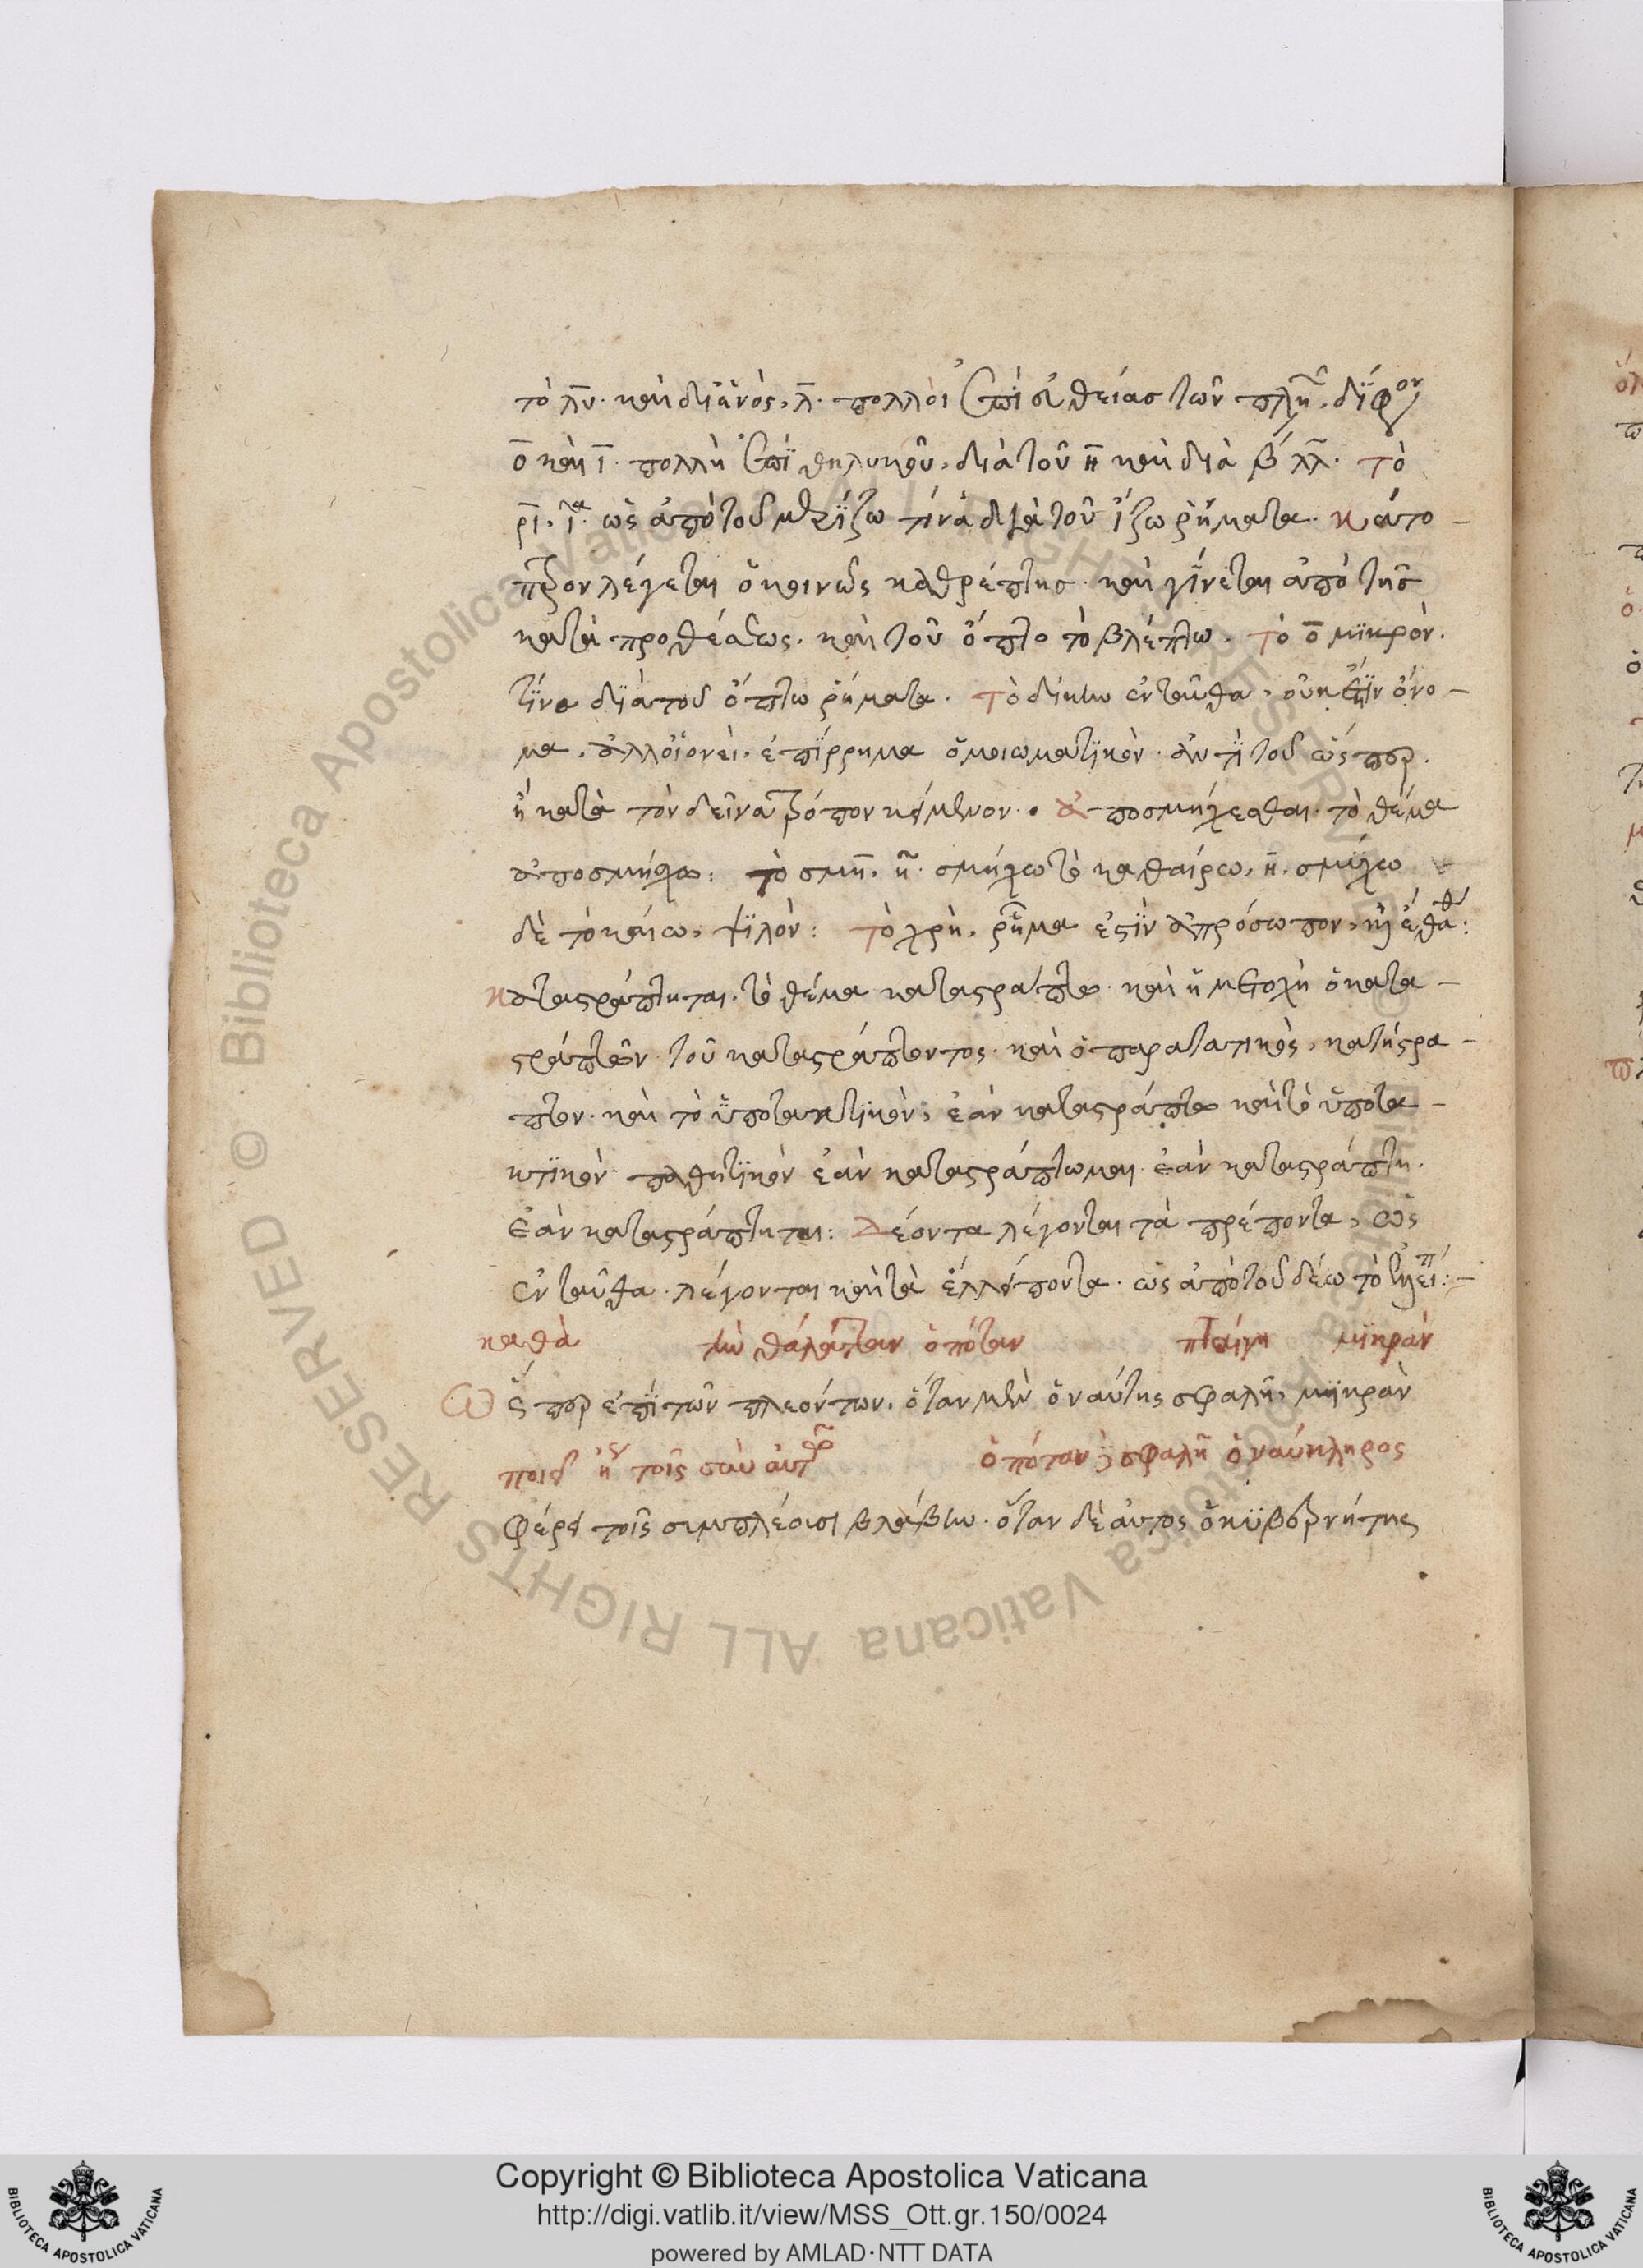 τὸ λῡ. καὶ διὰ ἑνὸς, λ̄. πολλοὶ ἐπὶ εὐθείας τῶν πλη, δίφθον
ο̄ καὶ ῑ. πολλὴ ἐπὶ θηλυκοῦ, διὰ τοῦ η̄ καὶ διὰ β λλ. τὸ
ρῑ, ῑ. ὡς ἀπὸ τοῦ τινὰ διὰ τοῦ ίζω ῥήματα. κάτο -
πτρον λέγεται ὁ κοινῶς καθρέπτης. καὶ γίνεται ἀπὸ τῆς
κατὰ προθέσεως. καὶ τοῦ ὄπτο τὸ βλέπτω. τὸ ο̄ μικρὸν.
τίνα διὰ τοῦ όπτω ῥήματα. Τὸ δίκην ἐνταῦθα, οὐκ ἔστιν ὄνο -
μα, ἀλλ' οἱονεὶ ἐπίρρημα ὁμοιωματικὸν. ἀντὶ τοῦ ὥσπερ.
ἢ κατὰ τὸν δεῖνα τρόπον κείμενον. ἀποσμήχεσθαι. τὸ θέμα
ἀποσμήχω: τὸ σμη, η̄. σμήχω τὸ καθαίρω, η̄. σμίχω
δὲ τὸ καίω, ψιλὸν: τὸ χρὴ, ῥῆμα ἐστὶν ἀπρόσωπον,
καταστράπτηται. τὸ θέμα καταστράπτω. καὶ ἡ μετοχὴ ὁ κατα -
στράπτων τοῦ καταστράπτοντος. καὶ ὁ παρατατικὸς, κατήστρα -
πτον. καὶ τὸ ὑποτακτικὸν, ἐὰν καταστράπτω καὶ τὸ ὑποτα -
κτικὸν παθητικὸν ἐὰν καταστράπτωμαι. ἐὰν καταστράπτη.
ἐὰν καταστράπτηται: Δέοντα λέγονται τὰ πρέποντα, ὡς
ἐνταῦθα. λέγονται καὶ τὰ ἐλλείποντα. ὡς ἀπὸ τοῦ δέω τὸ :-
καθὰ τὴν θάλατταν ὁπόταν πταίση μικρὰν
Ὥσπερ ἐπὶ τῶν πλεόντων, ὅταν μὲν ὁ ναύτης σφαλῆ, μικρὰν
ποιεῖ τοῖς σὺν αὐτῶ ὁπόταν σφαλῆ ὁ ναύκληρος
φέρει τοῖς συμπλέουσι βλάβην. ὅταν δὲ αὐτὸς ὁ κυβερνήτης
Copyright © Biblioteca Apostolica Vaticana
http://digi.vatlib.it/view/MSS_Ott.gr.150/0024
powered by AMLAD·NTT DATA
BIBLIOTECA APOSTOLICA VATICANA
BIBLIOTECA APOSTOLICA VATICANA
© Biblioteca Apostolica Vaticana ALL RIGHTS RESERVED
© Biblioteca Apostolica Vaticana ALL RIGHTS RESERVED